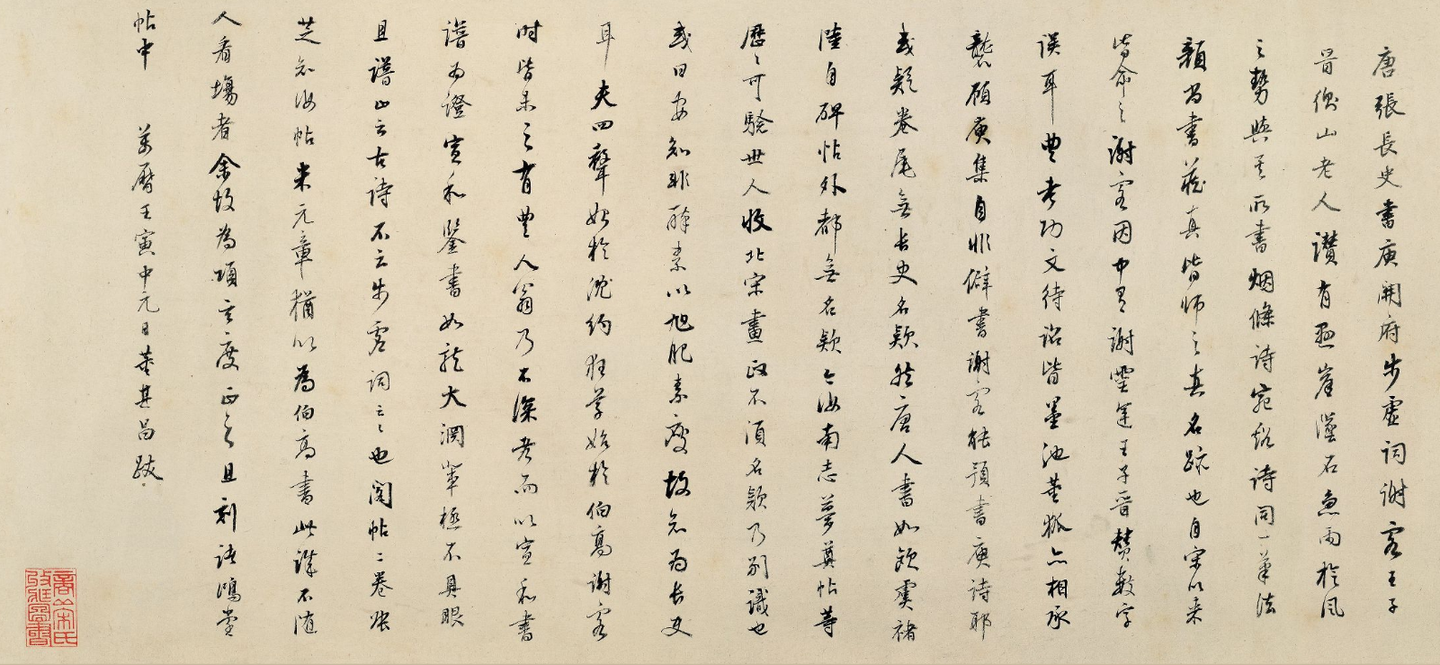 唐張長史書庾開府步虛詞謝客王子
晉衡山老人讚有懸崖墜石急雨旋風
之勢與其所書煙條詩宛谿詩同一筆法
顏尚書藏真皆師之真名跡也自宋以來
皆命之謝客因中有謝靈運王子晉贊數字
誤耳豐考功文待詔皆墨池董狐亦相承
襲顧庾集自非僻書謝客能預書庾詩耶
或疑卷尾無長史名款然唐人書如歐虞褚
陸自碑帖外都無名款今汝南志夢奠帖等
歷歷可驗世人收北宋畫政不須名款乃別識也
或曰安知非醉素以旭肥素瘦故知為長史
耳夫四聲始於沈約狂草始於伯高謝客
時皆未之有豐人翁乃不深考而以宣和書
譜為證宣和鑒書如龍大淵輩極不具眼
且譜止云古詩不云步虛詞云云也閣帖二卷張
芝知汝帖米元章猶以為伯高書此誰不隨
人看場者余故為項玄度正之且刻諸鴻堂
帖中 萬曆壬寅中元日董其昌跋